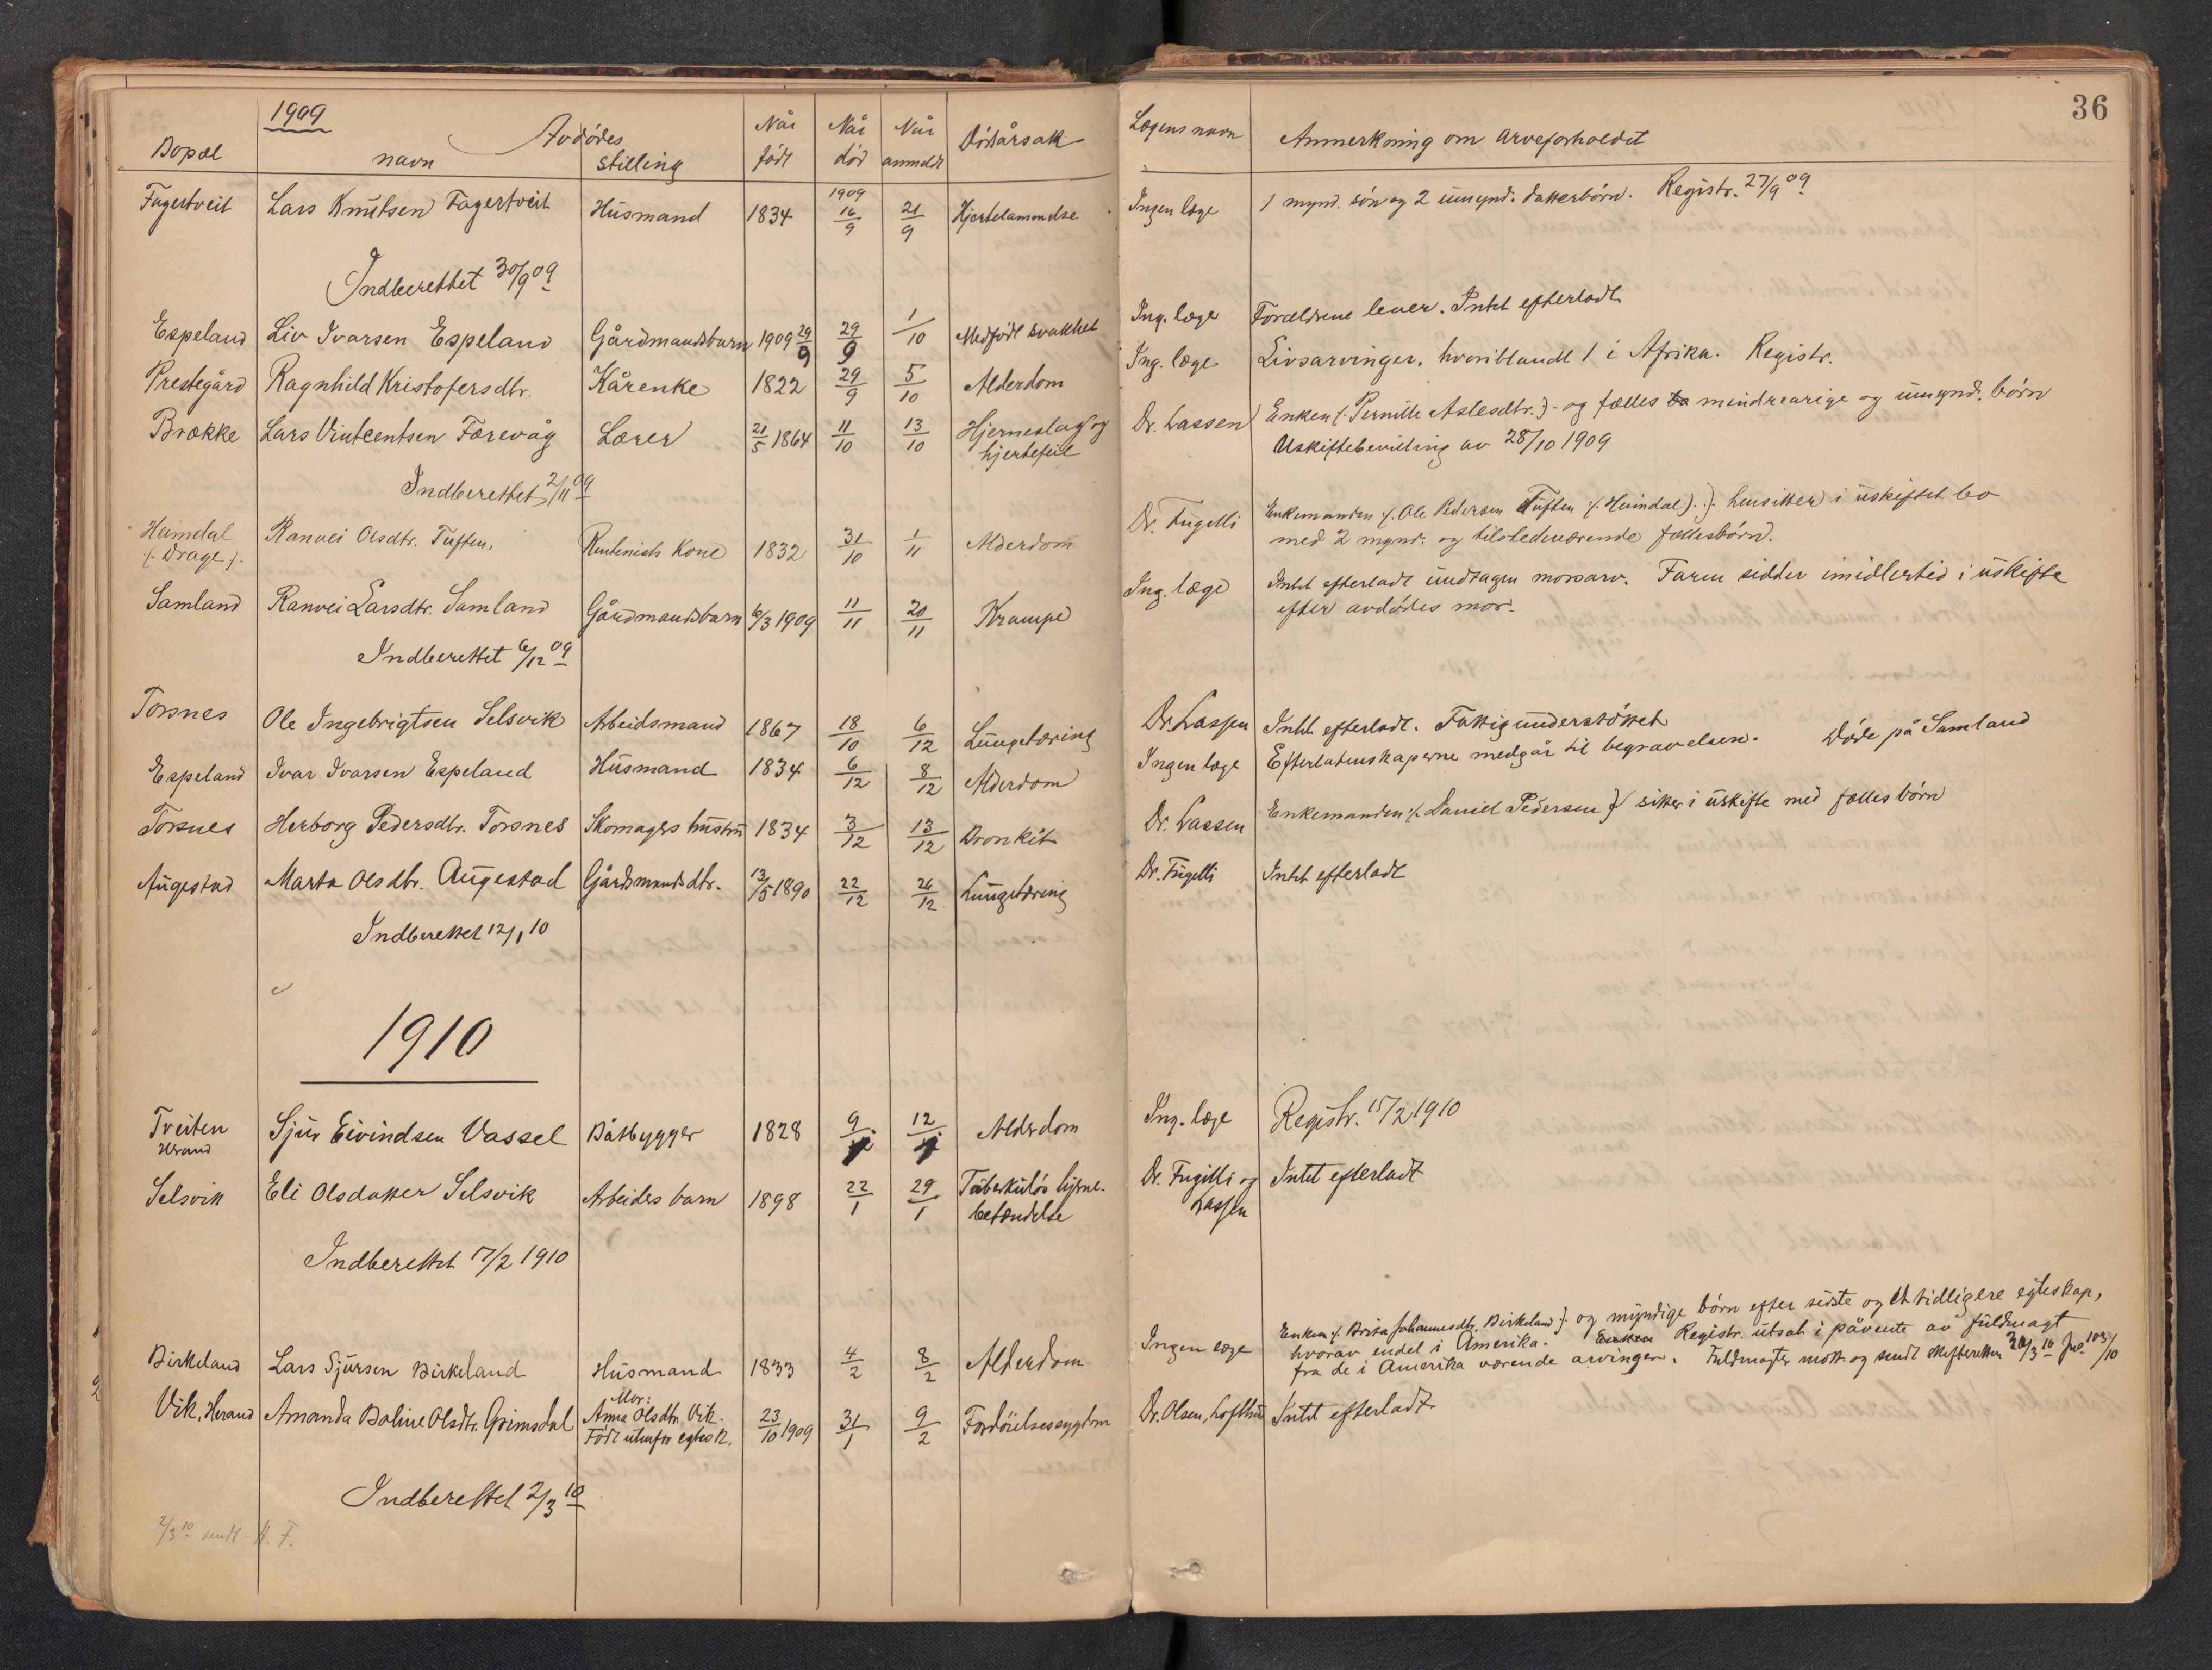 36
1909
Bopæl Avdødes navn stilling Når født Når død Når anmeldt Dödsårsak Lægens navn Anmerkning om arveforholdet
Fagertveit Lars Knutsen Fagertveit Husmand 1834 1909 16/9 21/9 Hjertelammelse Ingen læge 1 mynd. sön og 2 umynd. datterbörn. Registr. 27/9 09
Indberettet 30/9 09
Espeland Liv Ivarsen Espeland Gårdmandsbarn 1909 29/9 29/9 1/10 Medfödt svakhet Ing. læge Forældrene lever. Intet efterladt
Prestegård Ragnhild Kristofersdtr. Kårenke 1822 29/9 5/10 Alderdom Ing. læge Livsarvinger, hvoriblandt 1 i Afrika. Registr.
Brække Lars Vintcentsen Færevåg Lærer 21/5 1864 11/10 13/10 Hjerneslag og Dr. Lassen Enken /: Pernille Aslesdtr. :/ og fælles mindreårige og umynd. börn
hjertefeil Uskiftebevilling av 28/10 1909
Indberettet 2/11 09
Heimdal Ranvei Olsdtr. Tuften. Rentenists Kone 1832 31/10 1/11 Alderdom Dr. Fugelli Enkemanden /: Ole Pedersen Tuften /: Heimdal) :/ hensitter i uskiftet bo
/: Drage /: med 2 mynd. og tilstedeværende fællesbörn.
Samland Ranvei Larsdtr. Samland Gårdmandsbarn 6/3 1909 11/11 20/11 Krampe Ing. læge Intet efterladt undtagen morsarv. Faren sidder imidlertid i uskifte
efter avdödes mor.
Indberettet 6/12 09
Torsnes Ole Ingebrigtsen Selsvik Arbeidsmand 1867 18/10 6/12 Lungetæring Dr. Lassen Intet efterladt. Fattigunderstöttet
Espeland Ivar Ivarsen Espeland Husmand 1834 6/12 8/12 Alderdom Ingen læge Efterladenskaperne medgår til begravelsen. Döde på Samland
Torsnes Herborg Pedersdtr. Torsnes Skomagers hustru 1834 3/12 13/12 Bronkit Dr. Lassen Enkemanden /: Daniel Pedersen :/ sitter i uskifte med fælles börn
Augestad Marta Olsdtr. Augestad Gårdmandsdtr. 13/5 1890 22/12 26/12 Lungetæring Dr. Fugelli Intet efterladt
Indberettet 12/1 10
1910
Tveiten Sjur Eivindsen Vassel Båtbygger 1828 9/1 12/1 Alderdom Ing. læge Registr. 15/2 1910
Herand
Selsvik Eli Olsdatter Selsvik Arbeiders barn 1898 22/1 29/1 Tuberkulös hjerne- Dr. Fugelli og Intet efterladt
betændelse Lassen
Indberettet 17/2 1910
Birkeland Lars Sjursen Birkeland Husmand 1833 4/2 8/2 Alderdom Ingen læge Enken /: Brita Johannesdtr. Birkeland :/ og myndige börn efter sidste og et tidligere egteskap,
hvorav endel i Amerika. Enken Registr. utsat i påvente av fuldmagt
fra de i Amerika værende arvinger. Fuldmagter mott. og sendt skifteretten 20/3 10 Jno 103/10
Vik, Herand Amanda Boline Olsdtr. Grimsdal Mor: Anna Olsdtr. Vik. Födt utenfor egtesk. 23/10 1909 31/1 9/2 Fordöielsessygdom Dr. Olsen, Lofthus Intet efterladt
Indberettet 2/3 10
2/3 10 sendt H. F.